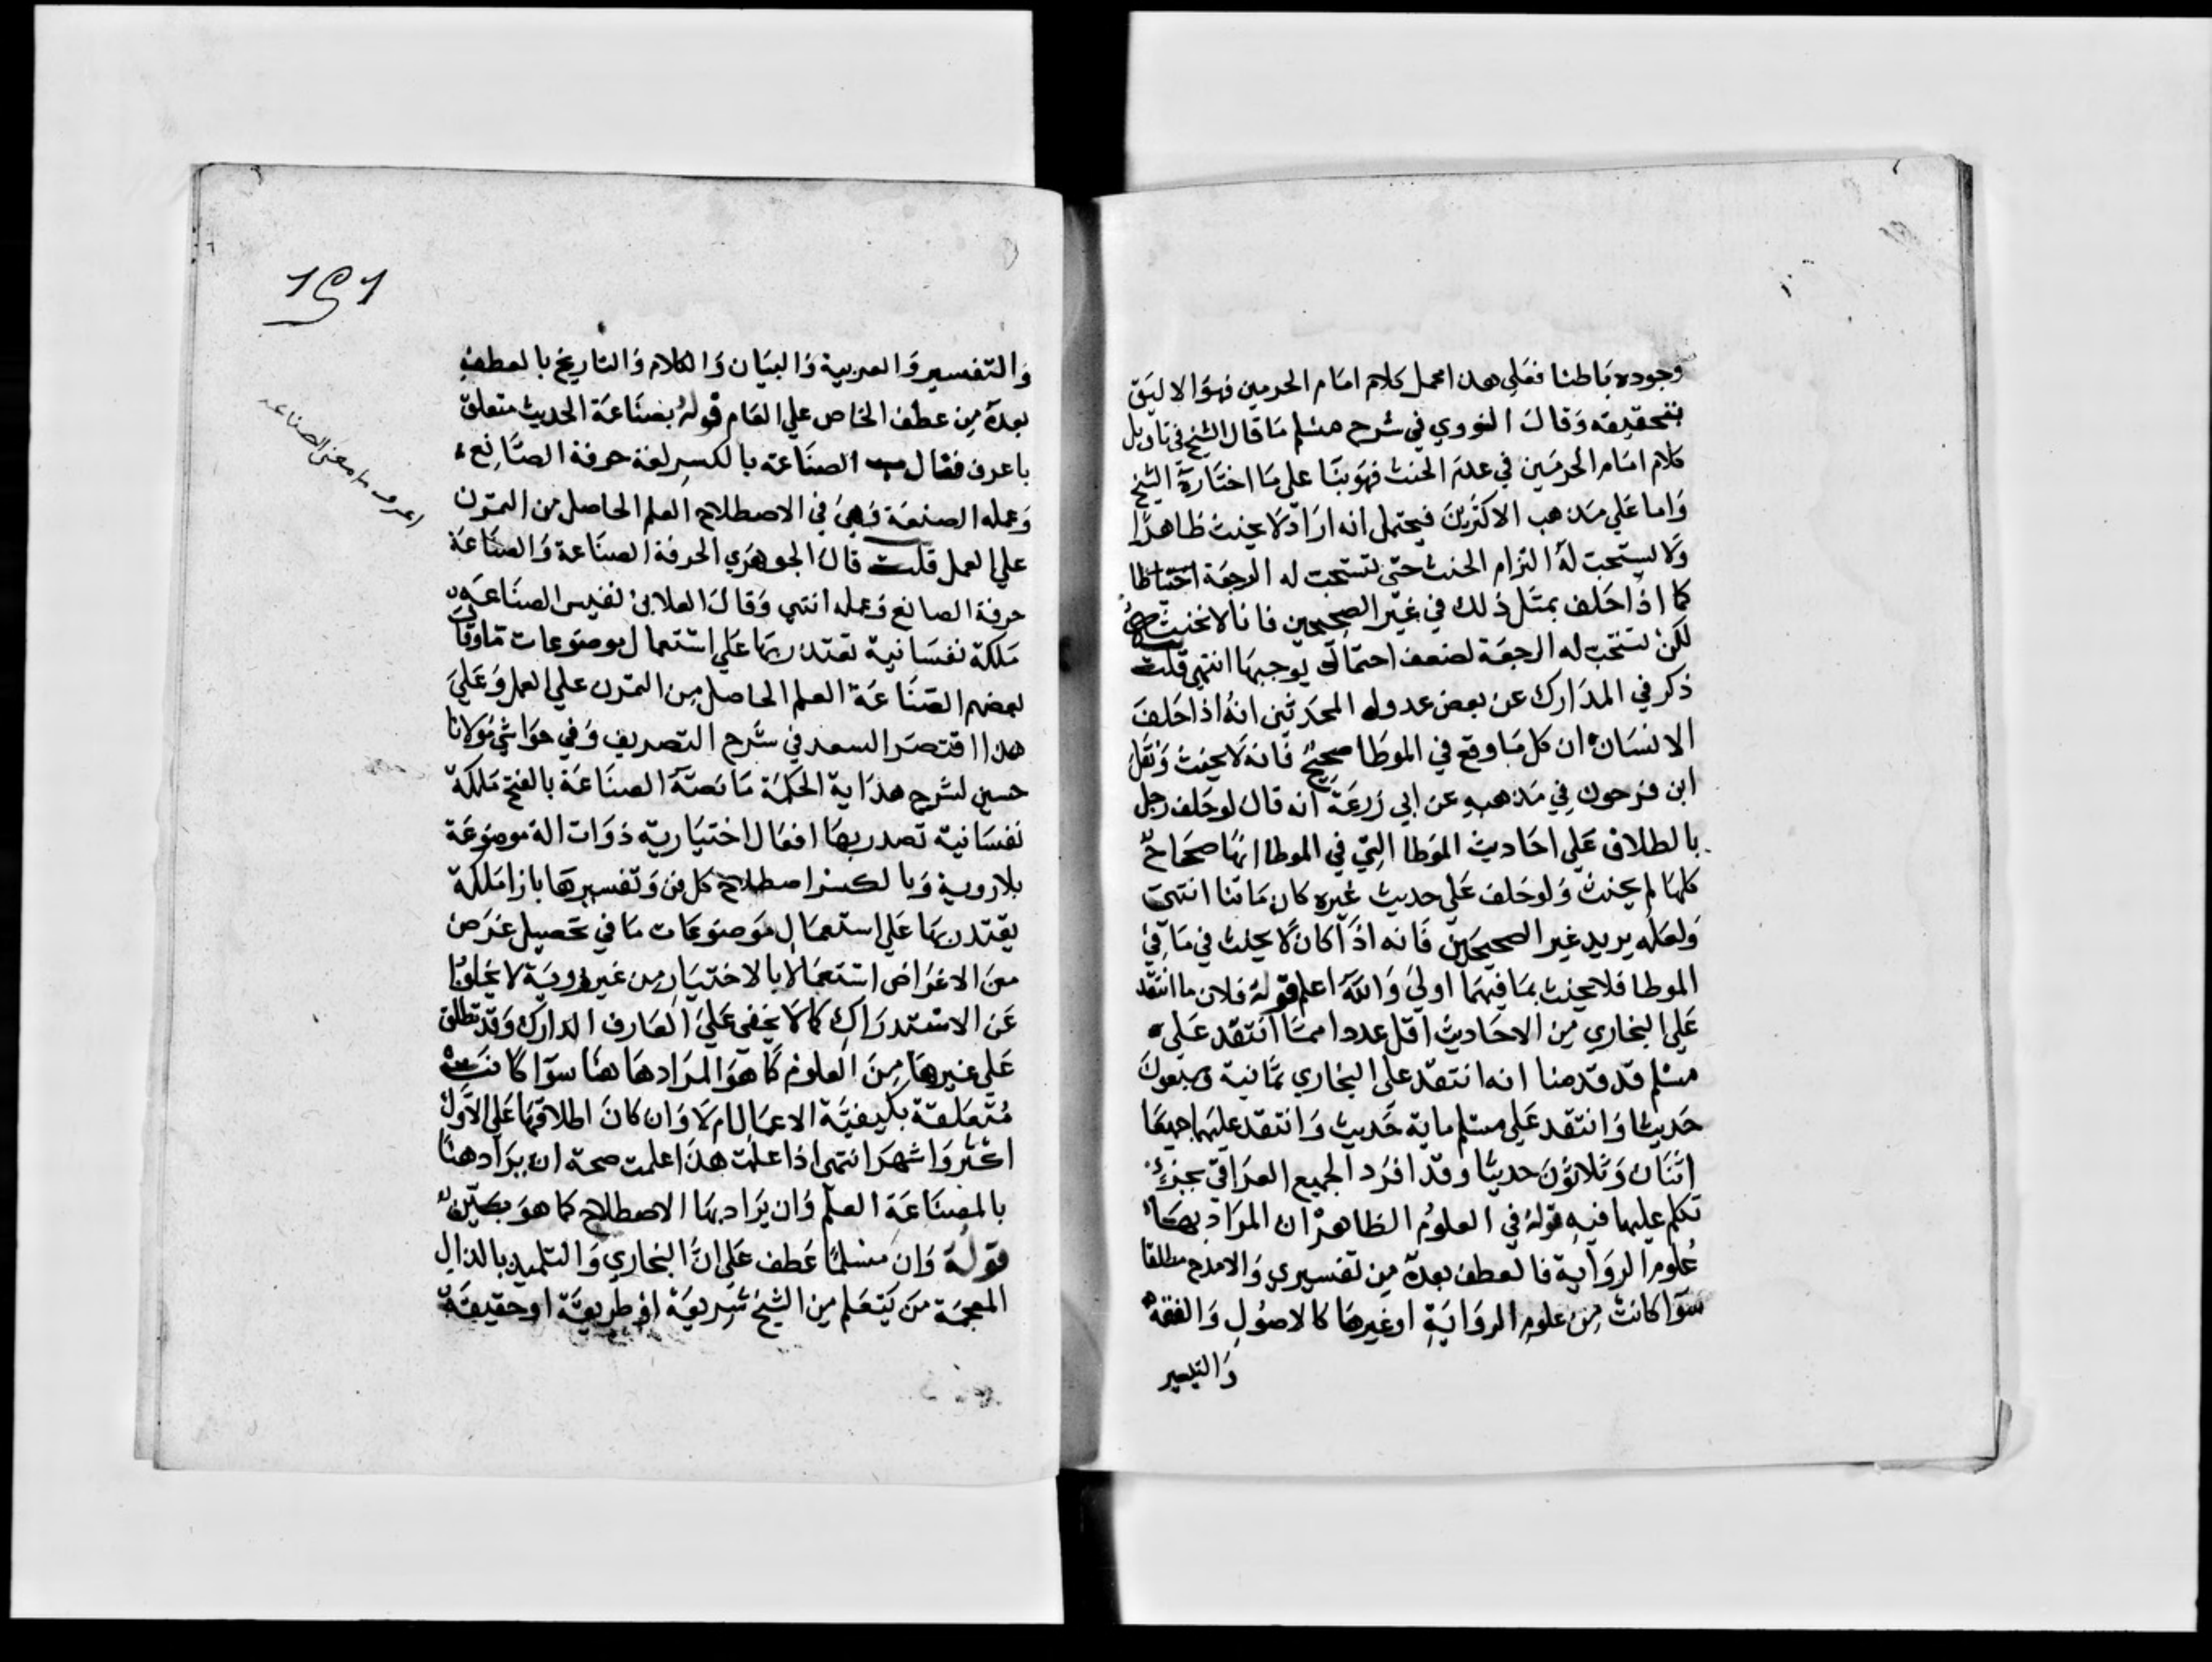 وجوده باطنا فعلي هذا محمل كلام امام الحرمين فهو الاليق
بتحقيقه وقال النووي في شرح مسلم ما قال الشيخ في تاويل
كلام امام الحرمين في عدم الحنث فهو بنا علي ما اختاره الشيخ
واما علي مذهب الاكثرين فيحتمل انه اراد لا يحنث ظاهرا
ولا يستحب له التزام الحنث حتي تستحب له الرجعة احتياطا
كما اذا حلف بمثل ذلك في غير الصحيحين فانا لا نحنثه
لكن تستحب له الرجعة لضعف احتمال يوجبها انتهي قلت
ذكر في المدارك عن بعض عدول المحدثين انه اذا حلف
الانسان ان كل ما وقع في الموطا صحيح فانه لا يحنث ونقل
ابن فرحون في مذهبه عن ابي زرعة انه قال لو حلف رجل
بالطلاق علي احاديث الموطا التي في الموطا انها صحاح
كلها لم يحنث ولو حلف علي حديث غيره كان حانثا انتهي
ولعله يريد غير الصحيحين فانه اذا كان لا يحنث في ما في
الموطا فلا يحنث بما فيهما اولي والله اعلم قوله فلان ما انتقد
علي البخاري من الاحاديث اقل عددا مما انتقد علي
مسلم قد قدمنا انه انتقد علي البخاري ثمانية وسبعون
حديثا وانتقد علي مسلم ماية حديث وانتقد عليهما جميعا
اثنان وثلاثون حديثا وقد افرد الجميع العراقي بجزء
تكلم عليهما فيه قوله في العلوم الظاهر ان المراد بها
علوم الرواية فالعطف بعده من تفسيري والامدح مطلقا
سوا كانت من علوم الرواية او غيرها كالاصول والفقه
والتفسير
191
والتفسير والعربية والبيان والكلام والتاريخ بالعطف
بعده من عطف الخاص علي العام قوله بصناعة الحديث متعلق
باعرف فقال الصناعة بالكسر لغة حرفة الصانع
وعمله الصنعة وهي في الاصطلاح العلم الحاصل من التمرن
علي العمل قلت قال الجوهري الحرفة الصناعة والصناعة
حرفة الصانع وعمله انتهي وقال العلا بن نفيس الصناعة
ملكة نفسانية تقتدر بها علي استعمال موضوعات ما وقال
بعضهم الصناعة العلم الحاصل من التمرن علي العمل وعلي
هذا اقتصر السعد في شرح التصريف وفي حواشي مولانا
حسين لشرح هداية الحكمة ما نصه الصناعة بالفتح ملكة
نفسانية تصدر بها افعال اختيارية ذوات الة موضوعة
بلا روية وبالكسر اصطلاح كل فن وتفسيرها بازا ملكة
يقتدر بها علي استعمال موضوعات ما في تحصيل غرض
من الاغراض استعمالا بالاختيار من غير روية لا يخلو
عن الاستدراك كما لا يخفي علي العارف الدارك وقد تطلق
علي غيرها من العلوم كما هو المراد هاهنا سوا كانت
متعلقة بكيفية الاعمال ام لا وان كان اطلاقها علي الاول
اكثر واشهر انتهي اذا علمت هذا علمت صحة ان يراد هنا
بالصناعة العلم وان يراد بها الاصطلاح كما هو بين
قوله وان مسلما عطف علي ان البخاري والتلميذ بالذال
المعجمة من يتعلم من الشيخ شريعة او طريقة او حقيقة
اعرف ما معني الصناعة